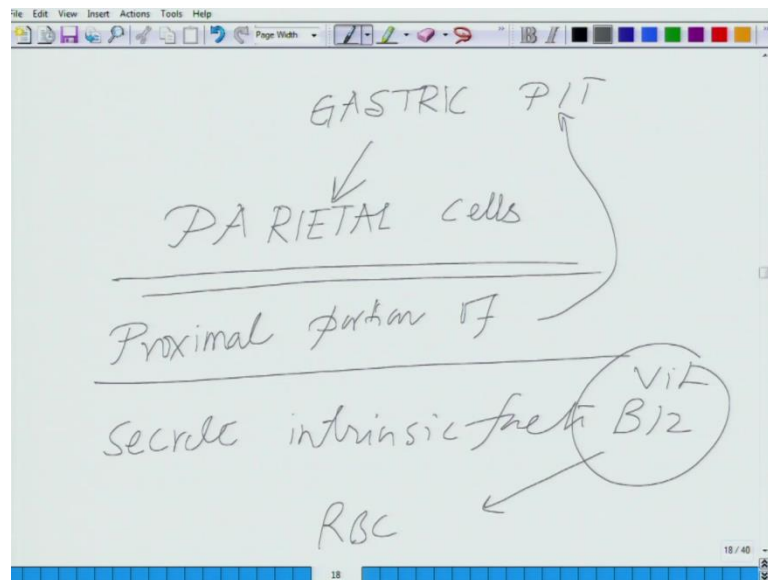 File Edit View Insert Actions Tools Help
Page Width
B I
GASTRIC PIT
PARIETAL cells
Proximal portion of
Vit
secrete intrinsic facto B12
RBC
18 / 40
18